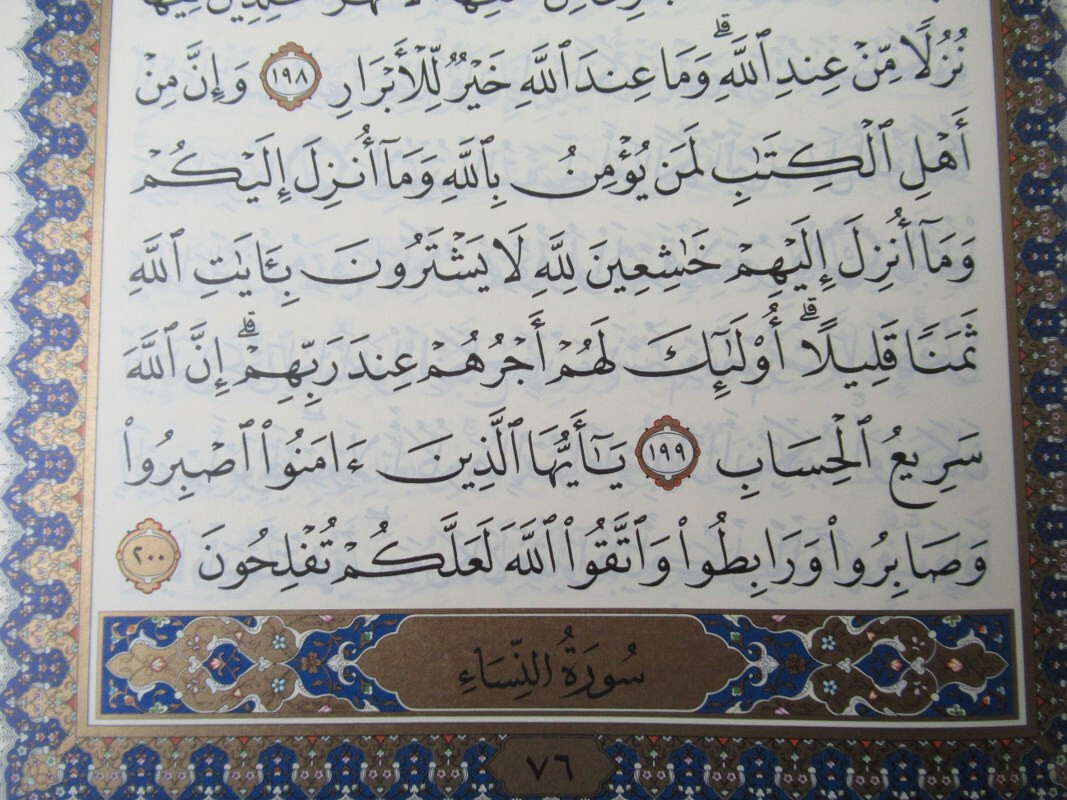 نُزُلًا مِّنْ عِندِ ٱللَّهِ ۗ وَمَا عِندَ ٱللَّهِ خَيْرٌ لِّلْأَبْرَارِ ١٩٨ وَإِنَّ مِنْ
أَهْلِ ٱلْكِتَٰبِ لَمَن يُؤْمِنُ بِٱللَّهِ وَمَآ أُنزِلَ إِلَيْكُمْ
وَمَآ أُنزِلَ إِلَيْهِمْ خَٰشِعِينَ لِلَّهِ لَا يَشْتَرُونَ بِـَٔايَٰتِ ٱللَّهِ
ثَمَنًا قَلِيلًا ۗ أُو۟لَٰٓئِكَ لَهُمْ أَجْرُهُمْ عِندَ رَبِّهِمْ ۗ إِنَّ ٱللَّهَ
سَرِيعُ ٱلْحِسَابِ ١٩٩ يَٰٓأَيُّهَا ٱلَّذِينَ ءَامَنُوا۟ ٱصْبِرُوا۟
وَصَابِرُوا۟ وَرَابِطُوا۟ وَٱتَّقُوا۟ ٱللَّهَ لَعَلَّكُمْ تُفْلِحُونَ ٢٠٠
سُورَةُ النِّسَاءِ
٧٦